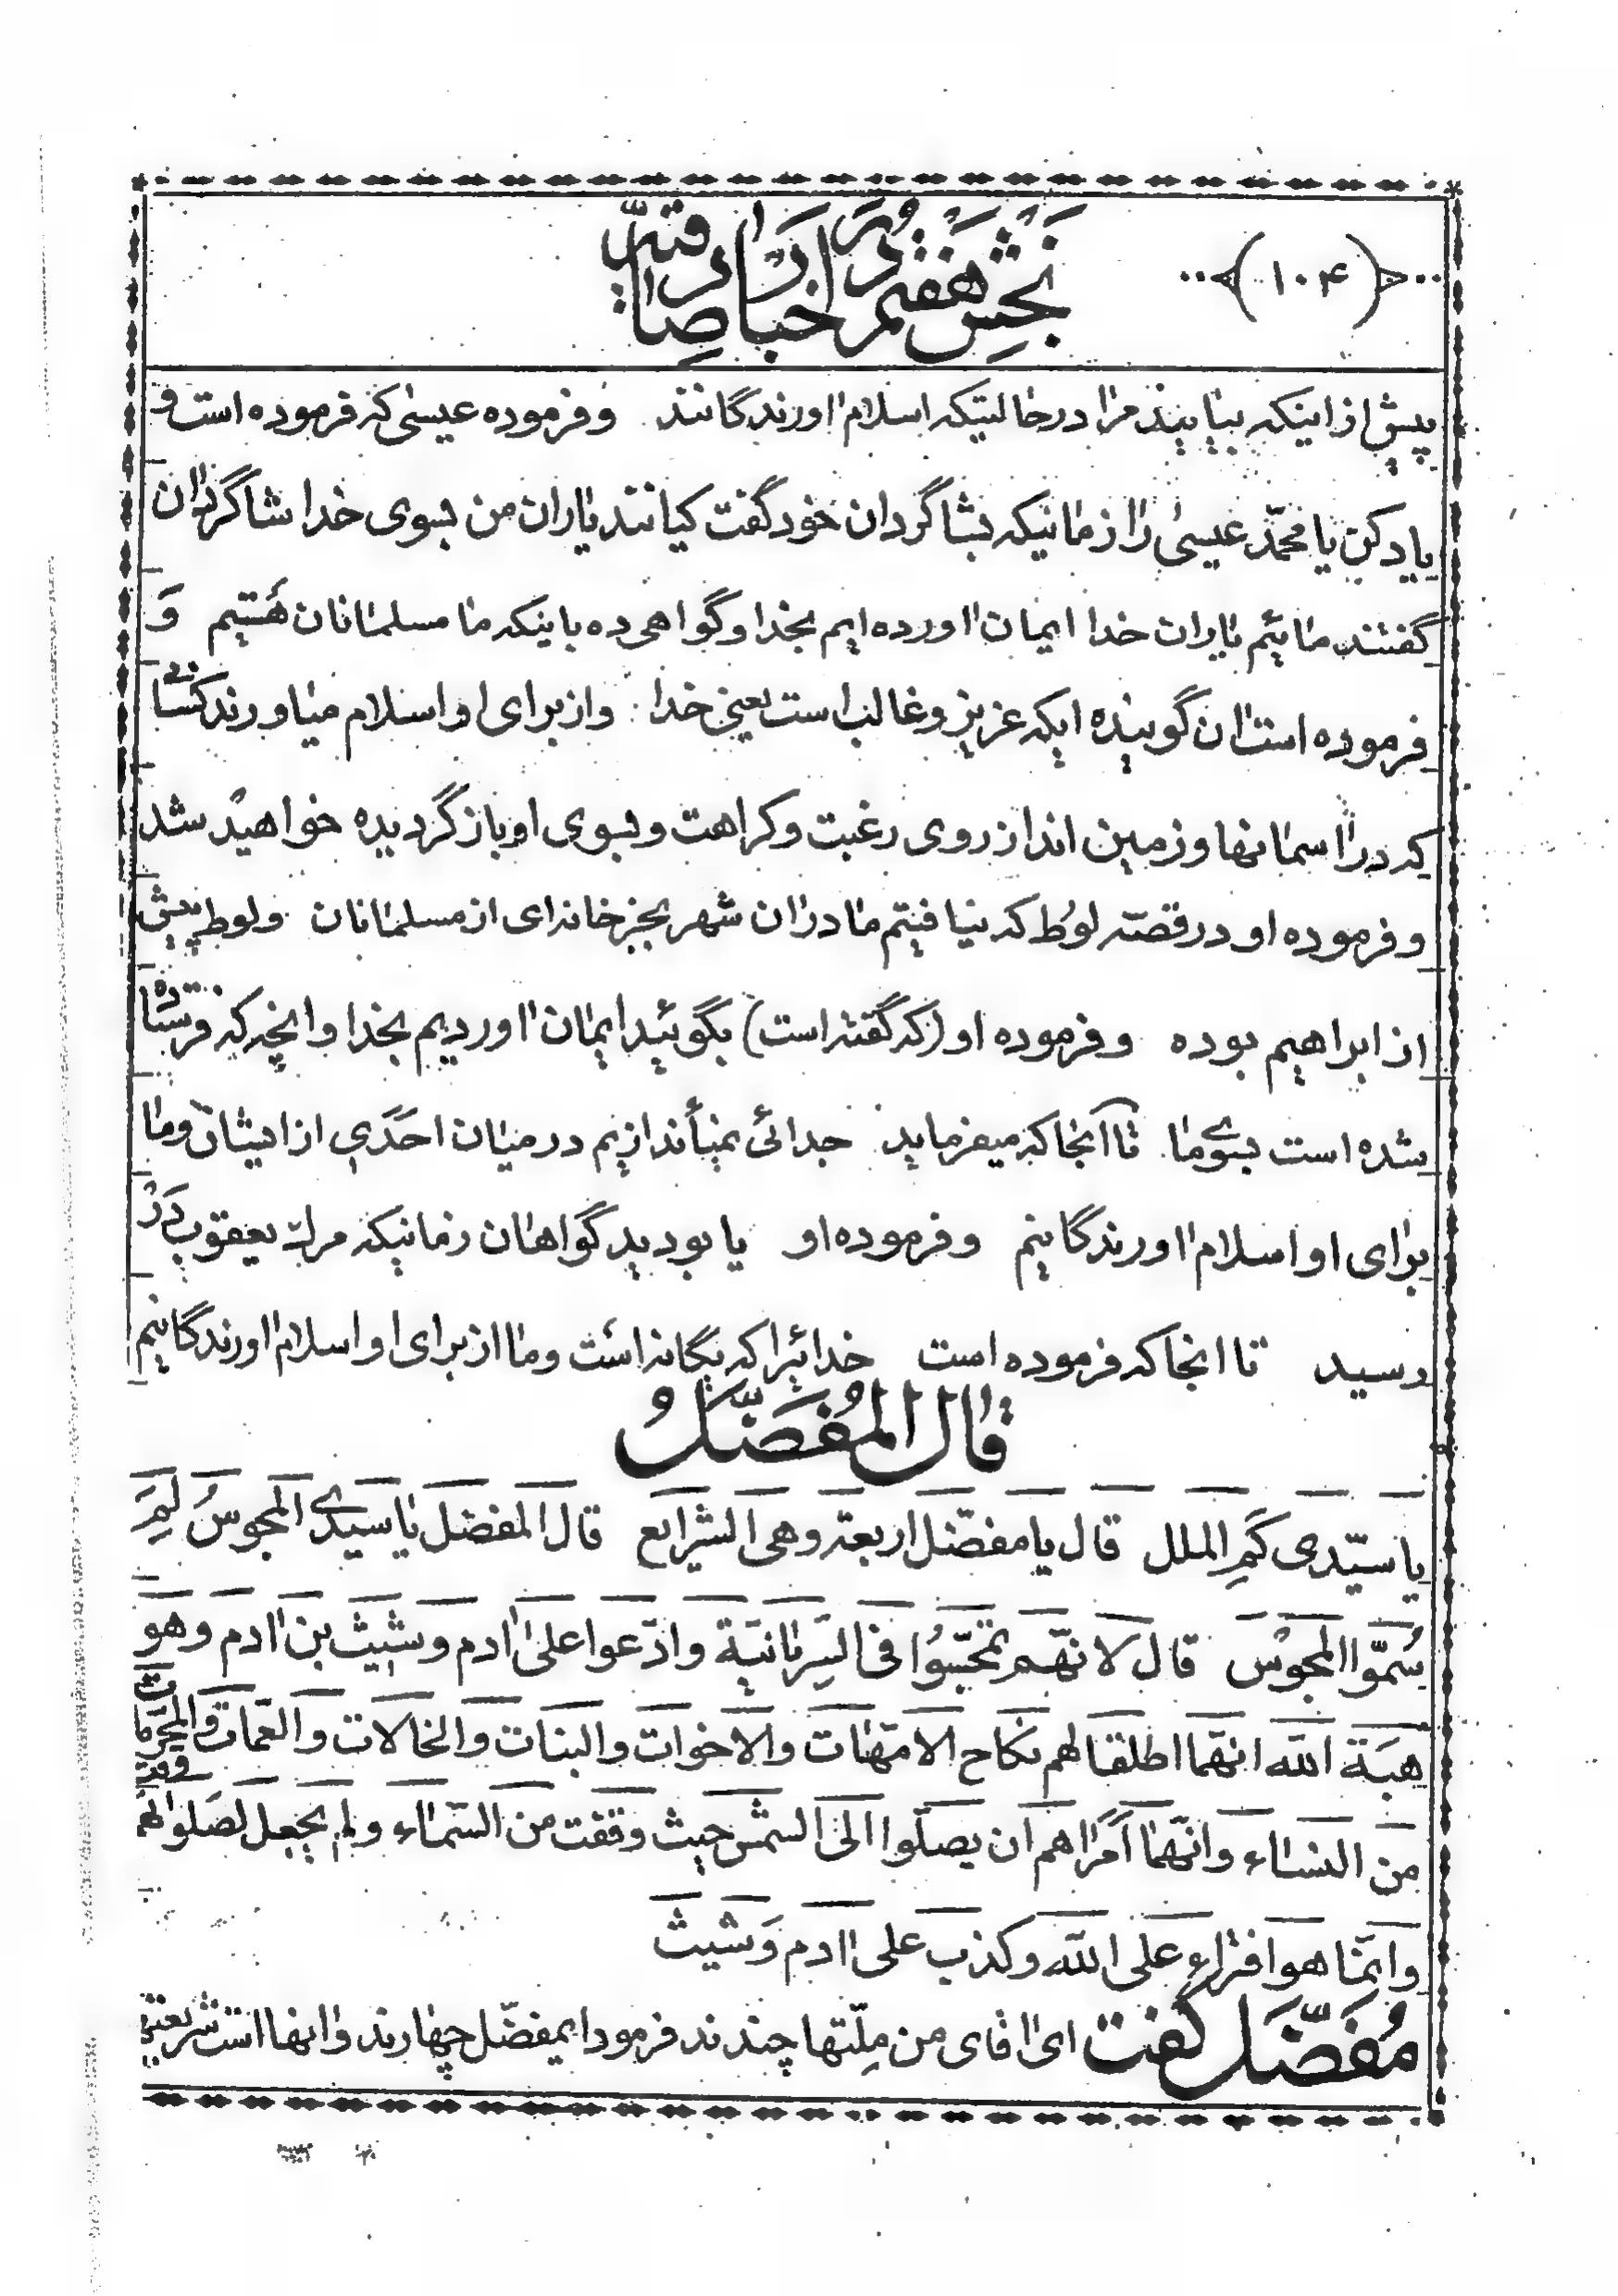 ﴿۱۰۴﴾
بخش هفتم در اخبار صادقیه
پیش از اینکه بیایند مرا در حالیتکه اسلام اورندگانند و فرموده عیسی که فرموده است و
یاد کن یا محمّد عیسی را زمانیکه بشاگردان خود گفت کیانند یاران من بسوی خدا شاگردان
گفتند مائیم یاران خدا ایمان اورده ایم بخدا و گواهی ده باینکه ما مسلمانان هستیم وَ
فرموده است ان گوینده ایکه عزیز و غالب است یعنی خدا و از برای او اسلام میاورند کسانی
که در اسمانها و زمین اند از روی رغبت و کراهت و بسوی او باز گردیده خواهید شد
و فرموده او در قصّه لوط که نیافتیم ما در ان شهر بجز خانه ای از مسلمانان و لوط پیش
از ابراهیم بوده و فرموده او (که گفته است) بگوئید ایمان اوردیم بخدا و انچه که فرستاده
شده است بسوی ما تا آنجا که میفرماید جدائی نمیأندازیم در میان احدی از ایشان و ما
برای او اسلام اورندگانیم و فرموده او یا بودید گواهان زمانیکه مرگ یعقوب در
رسید تا انجا که فرموده است خدائیرا که یگانه است و ما از برای او اسلام اورندگانیم
قال المُفَضَّلُ
یا سیّدی کَمِ الملل قال یا مفضّل اربعة وهی الشرایع قال المفضل یا سیدی المجوسُ لِمَ
سُمّوا المجوس قال لانّهم تمجّسُوا فی السریانیّة وادّعوا علی ادم وشیث بن ادم وهو
هبة الله انهّما اطلقا لهم نکاح الامّهات والاخوات والبنات والخالات والعمّات والمحرّمات
من النساء وانّهما اَمَراهم ان یصلّوا الی الشمس حیث وقفت من السّماء ولم یجعل لصلوتهم وقت
وانّما هو افتراء علی الله وکذب علی ادم وَشیث
مُفَضَّل گفت ای اقای من ملّتها چندند فرمود ایمفضّل چهارند و انها است شریعتی